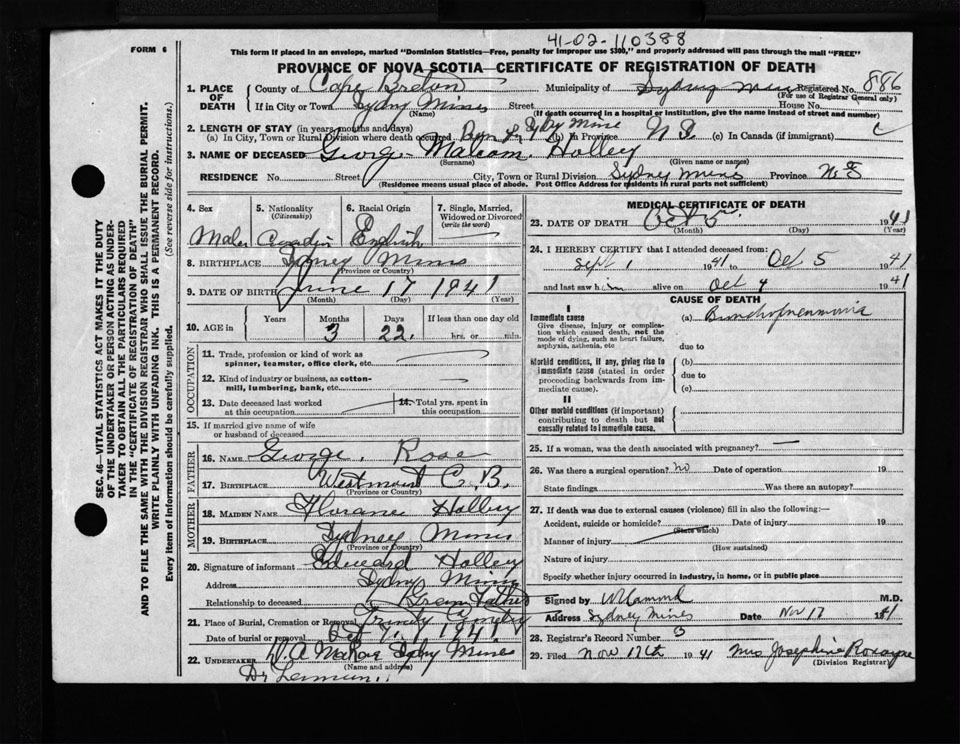 41-02-110388
FORM 6
This form if placed in an envelope, marked "Dominion Statistics—Free, penalty for improper use $300," and properly addressed will pass through the mail "FREE"
PROVINCE OF NOVA SCOTIA—CERTIFICATE OF REGISTRATION OF DEATH
SEC. 46—VITAL STATISTICS ACT MAKES IT THE DUTY
OF THE UNDERTAKER OR PERSON ACTING AS UNDER-
TAKER TO OBTAIN ALL THE PARTICULARS REQUIRED
IN THE "CERTIFICATE OF REGISTRATION OF DEATH"
AND TO FILE THE SAME WITH THE DIVISION REGISTRAR WHO SHALL ISSUE THE BURIAL PERMIT.
WRITE PLAINLY WITH UNFADING INK. THIS IS A PERMANENT RECORD.
Every item of information should be carefully supplied. (See reverse side for instructions.)
1. PLACE OF DEATH County of Cape Breton Municipality of Sydney Mines Registered No. 886
(For use of Registrar General only)
If in City or Town Sydney Mines Street House No.
(If death occurred in a hospital or institution, give the name instead of street and number)
2. LENGTH OF STAY (in years, months and days)
(a) In City, Town or Rural Division where death occurred Sydney Mines (b) In Province N S (c) In Canada (if immigrant)
3. NAME OF DECEASED George Malcom Holley
(Surname) (Given name or names)
RESIDENCE No. Street City, Town or Rural Division Sydney Mines Province N.S
(Residence means usual place of abode. Post Office Address for residents in rural parts not sufficient)
4. Sex 5. Nationality (Citizenship) 6. Racial Origin 7. Single, Married, Widowed or Divorced (write the word)
Male English
8. BIRTHPLACE Sydney Mines
(Province or Country)
9. DATE OF BIRTH June 17 1941
(Month) (Day) (Year)
10. AGE in Years Months Days If less than one day old
3 22 hrs. or min.
OCCUPATION
11. Trade, profession or kind of work as spinner, teamster, office clerk, etc.
12. Kind of industry or business, as cotton-mill, lumbering, bank, etc.
13. Date deceased last worked at this occupation 14. Total yrs. spent in this occupation
15. If married give name of wife or husband of deceased
FATHER
16. NAME George Rose
17. BIRTHPLACE Westmount C. B.
(Province or Country)
MOTHER
18. MAIDEN NAME Florance Holley
19. BIRTHPLACE Sydney Mines
(Province or Country)
20. Signature of informant Edward Holley
Address Sydney Mines
Relationship to deceased Gran Father
21. Place of Burial, Cremation or Removal Trinity
Date of burial or removal Oct 7 1941
22. UNDERTAKER Sydney Mines
(Name and address)
MEDICAL CERTIFICATE OF DEATH
23. DATE OF DEATH Oct 5 1941
(Month) (Day) (Year)
24. I HEREBY CERTIFY that I attended deceased from:
Sept 1 1941 to Oct 5 1941
and last saw him alive on Oct 4 1941
CAUSE OF DEATH
I
Immediate cause (a) Bronchopneumonia
Give disease, injury or complication which caused death, not the mode of dying, such as heart failure, asphyxia, asthenia, etc
due to
Morbid conditions, if any, giving rise to immediate cause (stated in order proceeding backwards from immediate cause). (b)
due to
(c)
II
Other morbid conditions (if important) contributing to death but not causally related to immediate cause.
25. If a woman, was the death associated with pregnancy?
26. Was there a surgical operation? no Date of operation 19
State findings Was there an autopsy?
27. If death was due to external causes (violence) fill in also the following:—
Accident, suicide or homicide? Date of injury 19
(State which)
Manner of injury
(How sustained)
Nature of injury
Specify whether injury occurred in industry, in home, or in public place
Signed by M.D.
Address Sydney Mines Date Nov 17 1941
28. Registrar's Record Number
29. Filed Nov 17th 1941 Mrs Josephine
(Division Registrar)